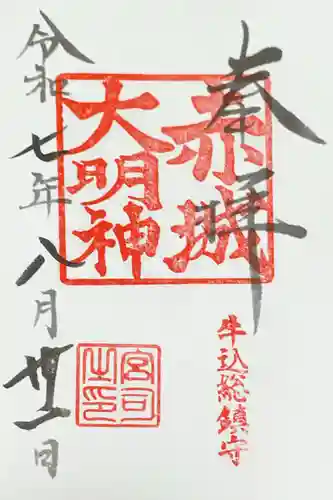 奉拝
赤城
大明神
牛込総鎮守
宮司
之印
令和七年八月廿一日